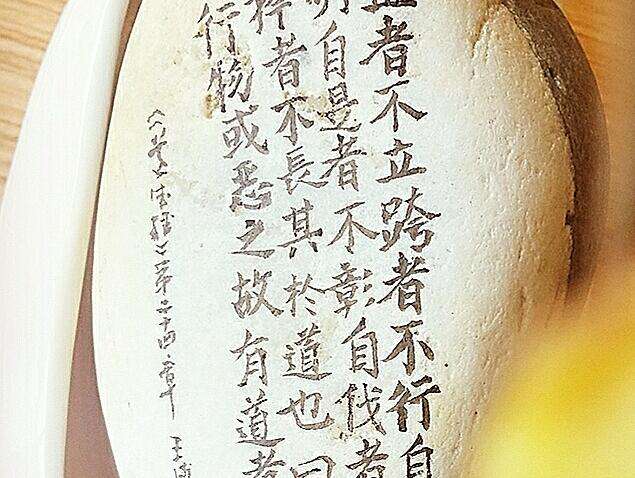 者不立跨者不行自
明自是者不彰自伐者
矜者不長其於道也曰
行物或惡之故有道者
《道德經》第二十四章 王